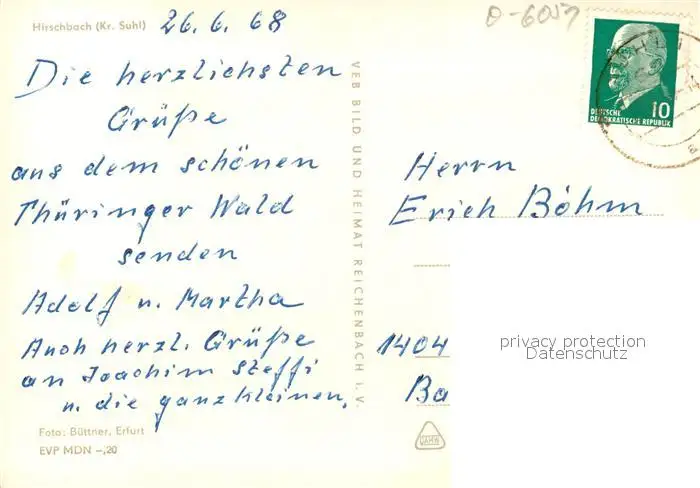 Hirschbach (Kr. Suhl) 26.6.68
O-6057
Die herzlichsten
Grüße
aus dem schönen
Thüringer Wald
senden
Adolf u. Martha
Auch herzl. Grüße
an Joachim Steffi
u. die ganz kleinen,
Foto: Büttner, Erfurt
EVP MDN -,20
VEB BILD UND HEIMAT REICHENBACH I. V.
10
DEUTSCHE
DEMOKRATISCHE REPUBLIK
Herrn
Erich Böhm
1404
Ba
privacy protection
Datenschutz